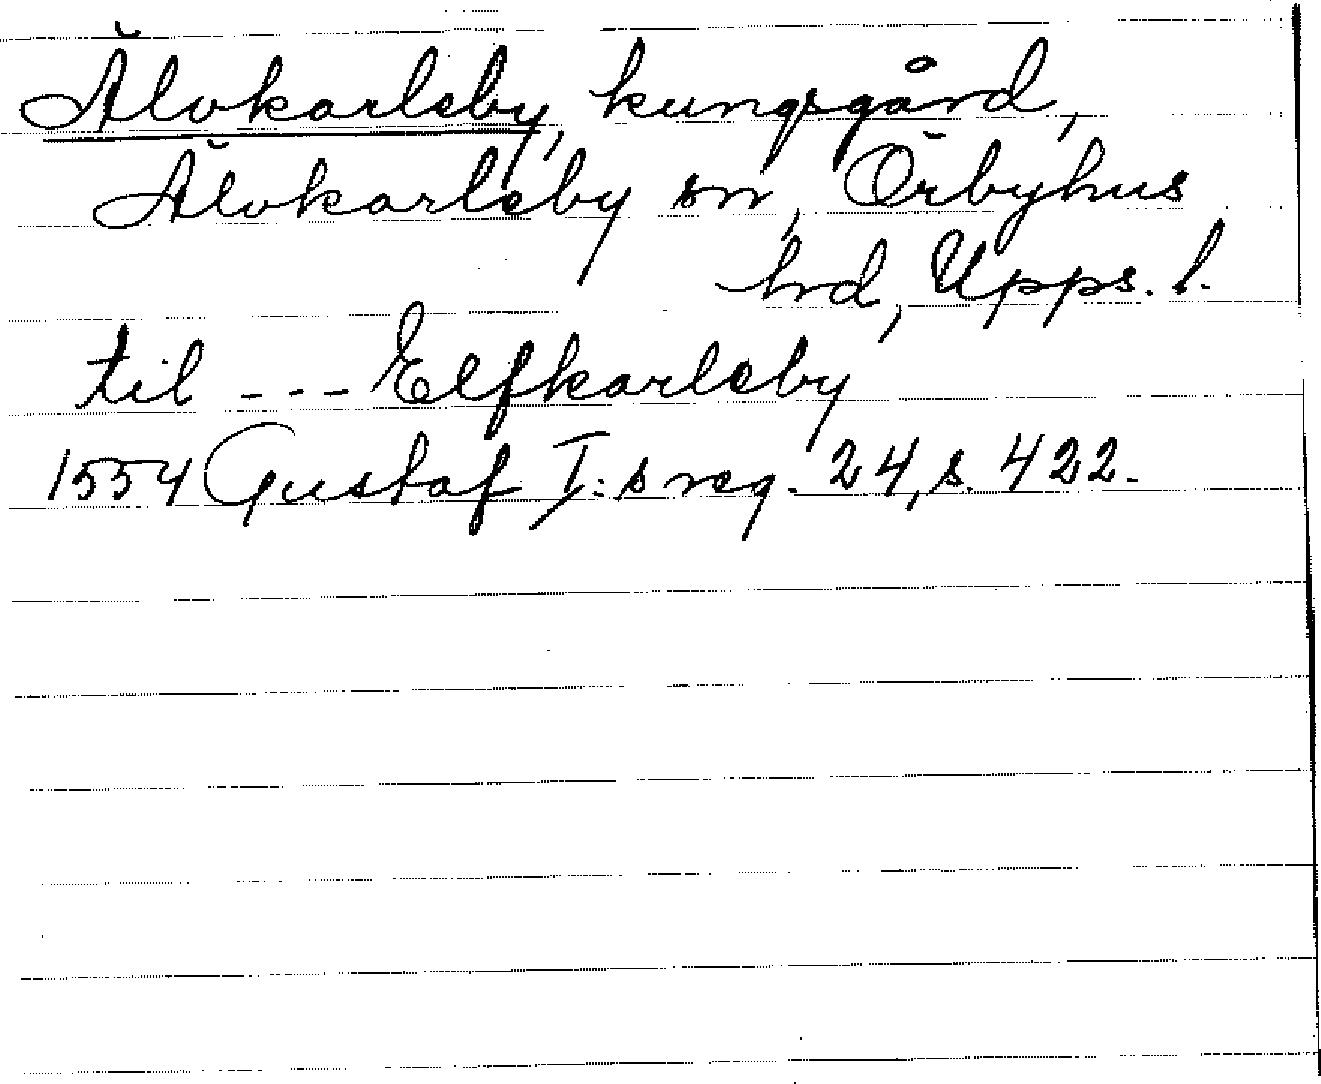 Älvkarleby, kungsgård,
Älvkarleby sn, Örbyhus
hd, Upps. l.
til --- Elfkarleby
1554 Gustaf I:s reg. 24, s. 422.